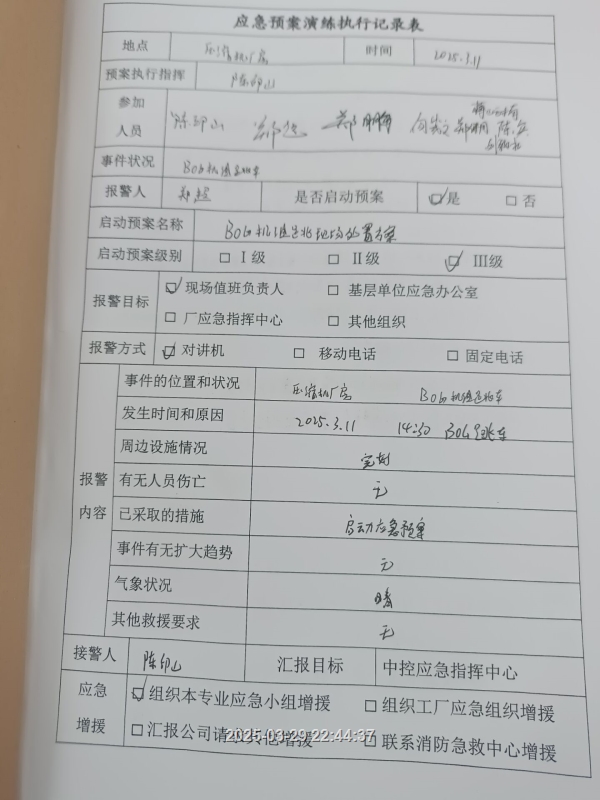 应急预案演练执行记录表
地点 压缩机厂房 时间 2025.3.11
预案执行指挥 陈印山
参加人员 陈印山 郑超 郑鹏
事件状况 BOG机
报警人 郑超 是否启动预案 ☑是 □否
启动预案名称 BOG机 现场处置方案
启动预案级别 □ I级 □ II级 ☑ III级
报警目标 ☑ 现场值班负责人 □ 基层单位应急办公室
□ 厂应急指挥中心 □ 其他组织
报警方式 ☑ 对讲机 □ 移动电话 □ 固定电话
报警内容
事件的位置和状况 压缩机厂房 BOG机
发生时间和原因 2025.3.11 14:30 BOG 跳车
周边设施情况 完好
有无人员伤亡 无
已采取的措施 启动应急预案
事件有无扩大趋势 无
气象状况 晴
其他救援要求 无
接警人 陈印山 汇报目标 中控应急指挥中心
应急增援 ☑组织本专业应急小组增援 □组织工厂应急组织增援
□汇报公司请求其他增援 □联系消防急救中心增援
2025-03-29 22:44:37